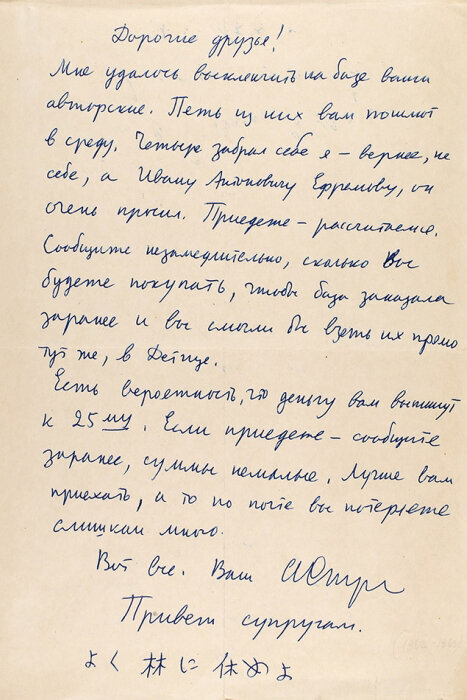 Дорогие друзья!
Мне удалось выклянчить на базе ваши
авторские. Пять из них вам пошлют
в среду. Четыре забрал себе я – вернее, не
себе, а Ивану Антоновичу Ефремову, он
очень просил. Приедете – рассчитаемся.
Сообщите незамедлительно, сколько Вы
будете покупать, чтобы база заказала
заранее и вы смогли бы взять их прямо
тут же, в Детгизе.
Есть вероятность, что деньги вам вышлют
к 25му. Если приедете – сообщите
заранее, суммы немалые. Лучше вам
приехать, а то по почте вы потеряете
слишком много.
Вот все. Ваш
Привет супругам.
よく 林に 休めよ